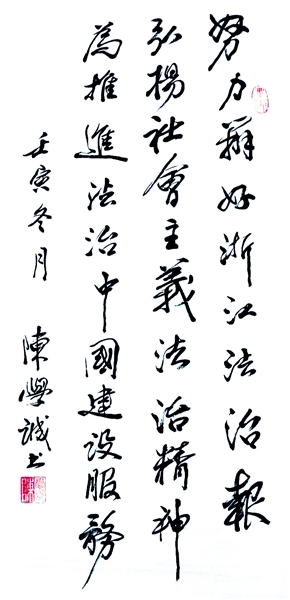 努力辦好浙江法治報
弘揚社會主義法治精神
為推進法治中國建設服務
壬寅冬月
陳學誠书